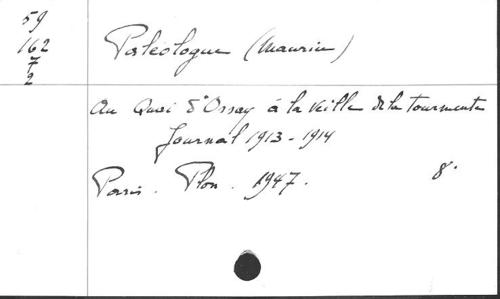 59
162
7
2
Paleologue (Maurice)
Au Quai d'Orsay à la veille de la tourmente
Journal 1913-1914
Paris. Plon. 1947. 8°